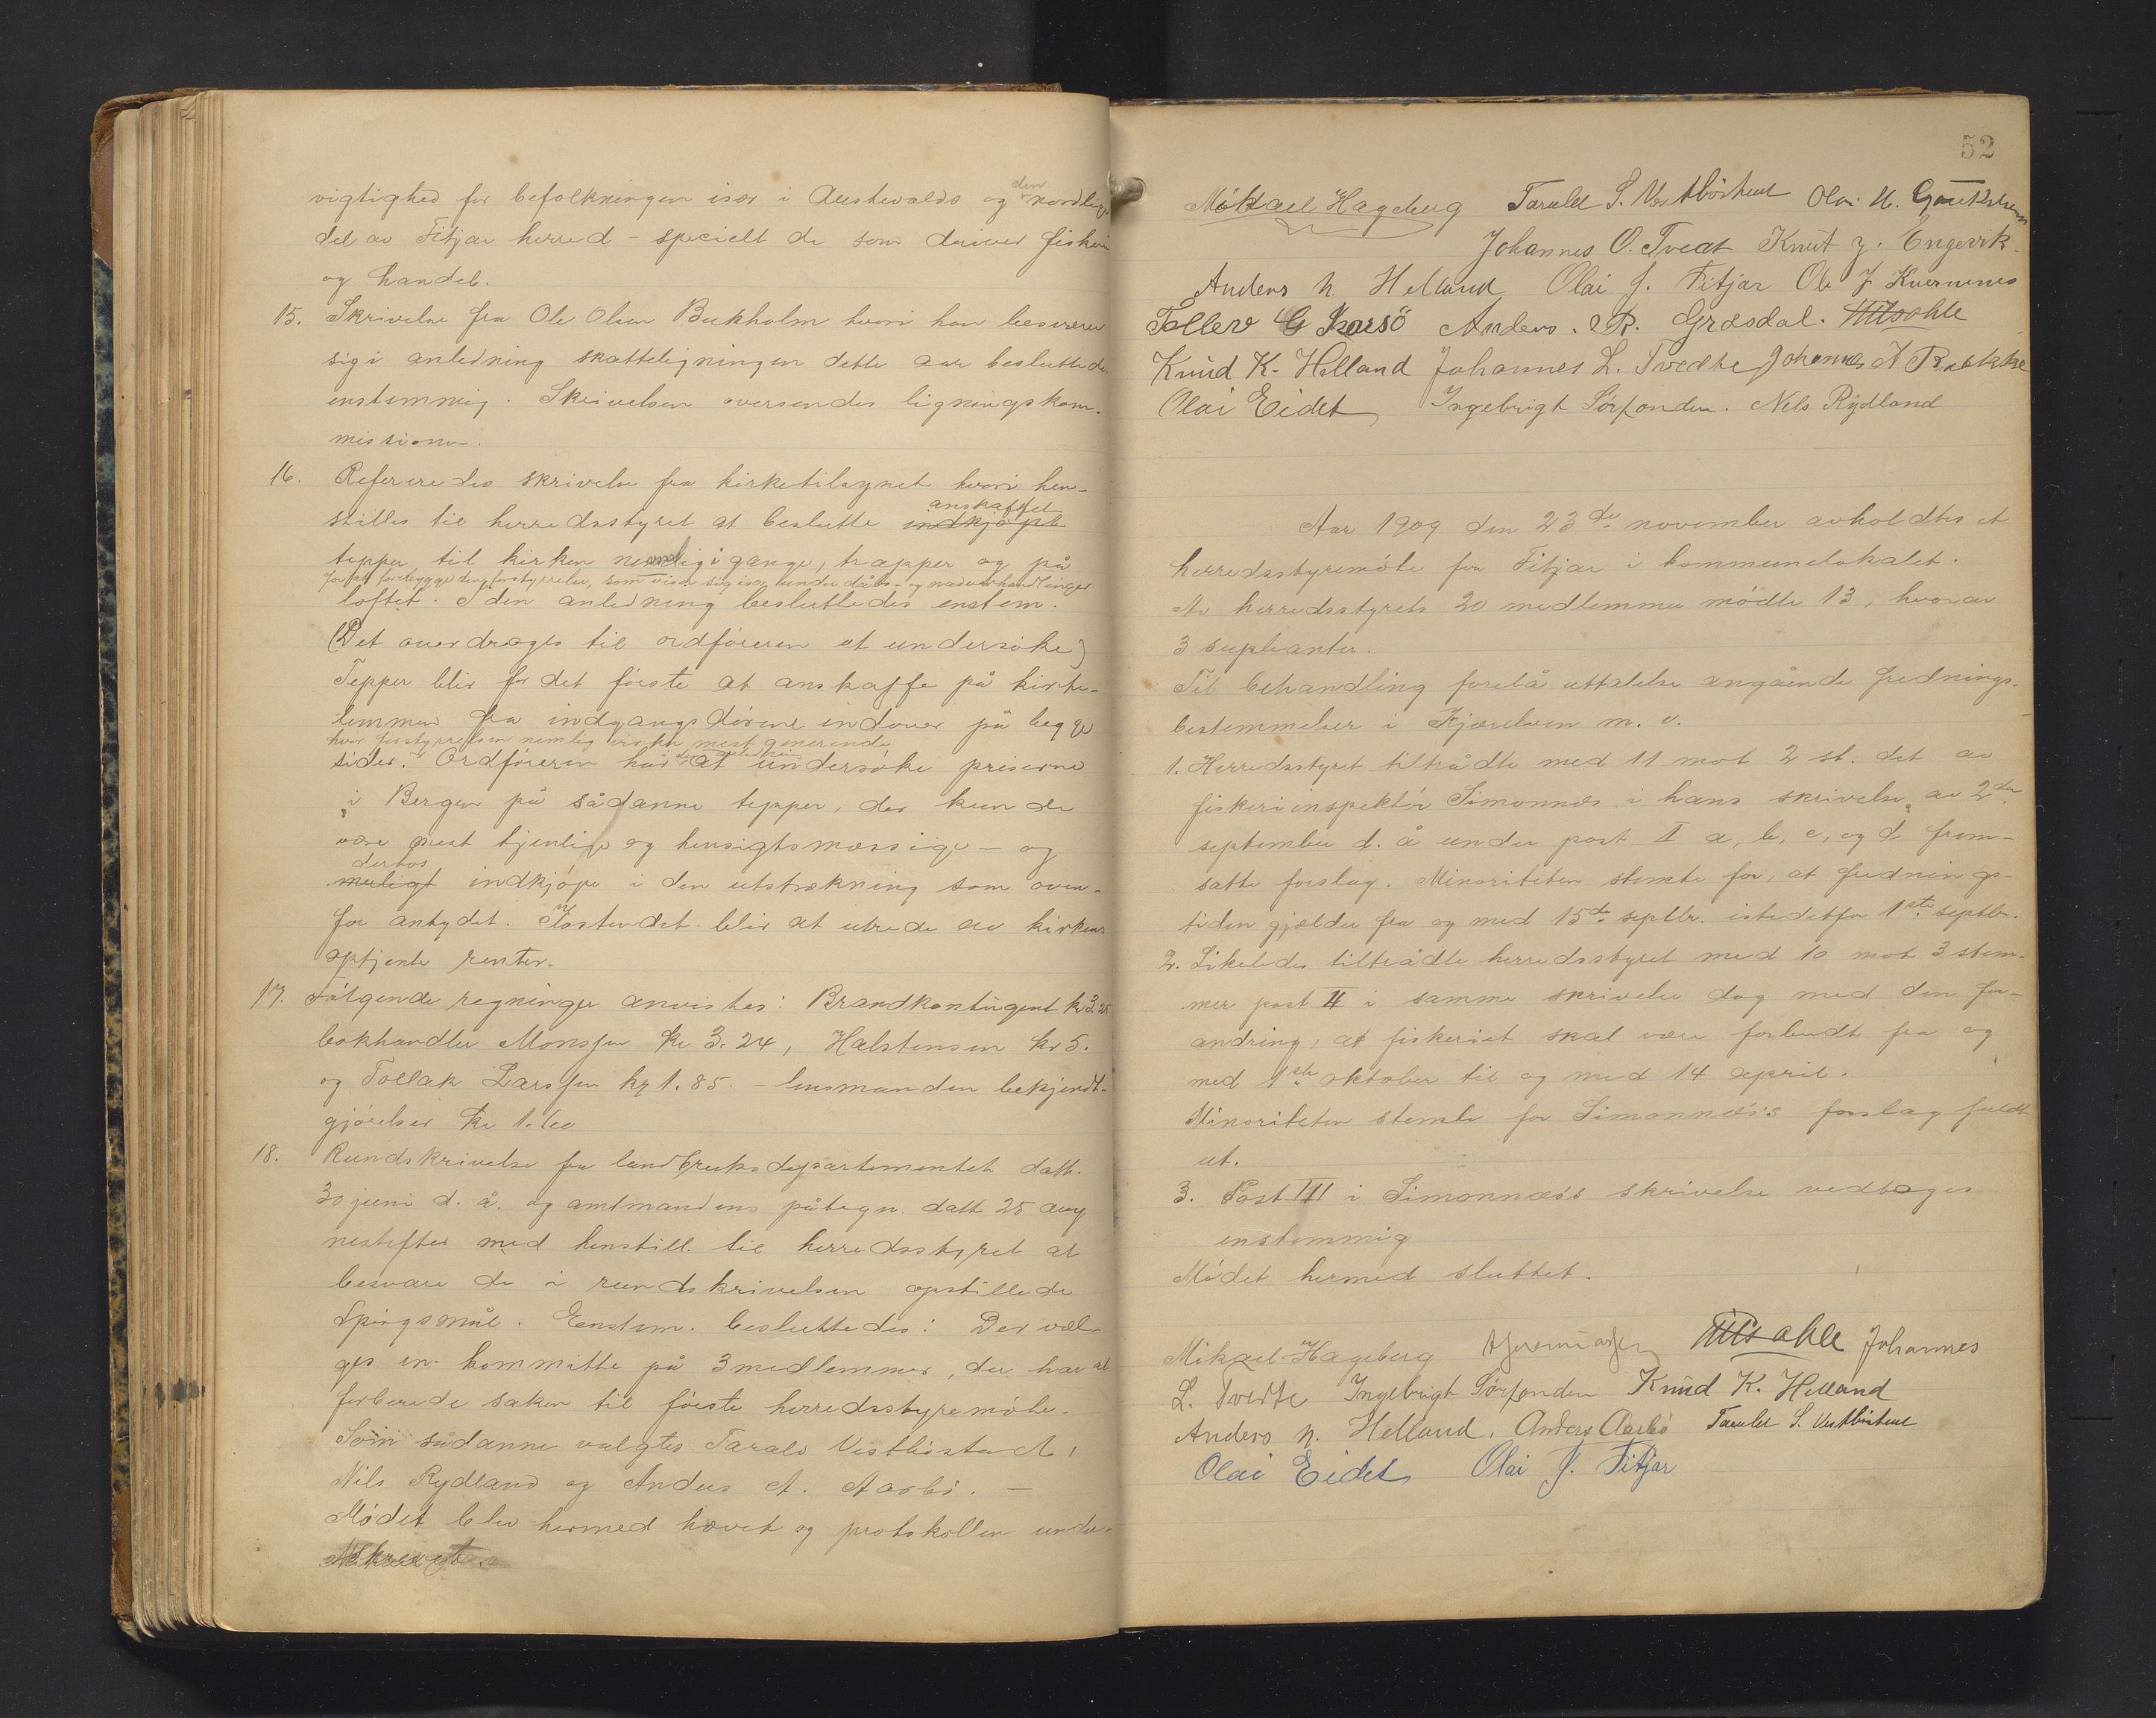 vigtighed for befolkningen især i Austevolds og den nordlige
del av Fitjar herred - specielt de som driver fiskeri
og handel.
15. Skrivelse fra Ole Olsen Bukholm hvori han besværer
sig i anledning skatteligningen dette aar besluttedes
enstemmig. Skrivelsen oversendes ligningskom-
missionen.
16. Refereredes skrivelse fra kirketilsynet hvori hen-
stilles til herredsstyret at beslutte indkjøpt anskaffet
tepper til kirken nemlig i gange, trapper og på
for at forebygge den forstyrrelse, som viser sig især under dåbs- og nadverhandlinger
loftet. I den anledning besluttedes enstem.
(Det overdrages til ordføreren at undersøke)
Tepper blir for det første at anskaffe på kirke-
lemmen fra indgangsdørene indover på begge
hvor forstyrrelsen nemlig virker mest generende
sider. Ordføreren har at undersøke priserne
i Bergen på sådanne tepper, der kunde
være mest tjenlige og hensigtsmæssige - og
derhos
muligt indkjøpe i den utstrækning som oven-
for antydet. Kostendet blir at utrede av kirkens
optjente renter.
17. Følgende regninger anvistes: Brandkontingent kr 3.25
bokhandler Monssen kr 3.24, Halstensen kr 5.
og Tollak Larssen kr 1.85. - lensmanden bekjendt-
gjørelser kr 1.60
18. Rundskrivelse fra landbruksdepartementet datt.
30 juni d. å. og amtmandens påtegn. datt 25 aug
nestefter med henstill. til herredsstyret at
besvare de i rundskrivelsen opstillede
spørgsmål. Enstem. besluttedes: Der væl-
ges en kommitte på 3 medlemmer, der har at
forberede saken til første herredsstyremøte.
Som sådanne valgtes Tarald Vestbøstad,
Nils Rydland og Anders A. Aarbø. -
Mødet blev hermed hævet og protokollen under-
skrevet.
52
Mikael Hageberg Tarald S. Vestbøstad Olai N. Gauksheim
Johannes O. Tveat Knut J. Engevik
Anders N. Helland Olai J. Fitjar Ole J. Kvernenes
Tollev G Korsö Anders. R. Græsdal.
Knud K. Helland Johannes L. Tvedte Johannes A Række
Olai Eidet Ingebrigt Sørfonden. Nels Rÿdland
Aar 1909 den 23de november avholdtes et
herredsstyremöte for Fitjar i kommunelokalet.
Av herredsstyrets 20 medlemmer mødte 13, hvorav
3 supleanter.
Til behandling forelå uttalelse angående frednings-
bestemmelser i Kjærelven m. v.
1. Herredsstyret tilrådte med 11 mot 2 st. det av
fiskeriinspektör Simonnæs i hans skrivelse av 2den
september d. å under post I a, b, c, og d frem-
satte forslag. Minoriteten stemte for, at frednings-
tiden gjælder fra og med 15de septbr. istedetfor 1ste septbr.
2. Likeledes tiltrådte herredsstyret med 10 mot 3 stem-
mer post II i samme skrivelse dog med den for-
andring, at fiskeriet skal være forbudt fra og
med 1ste oktober til og med 14 april.
Minoriteten stemte for Simonnæs's forslag fuldt
ut.
3. Post III i Simonnæs's skrivelse vedtoges
enstemmig
Mødet hermed sluttet.
Mikael Hageberg Johannes
L. Tvedte Ingebrigt Sørfonden Knud K. Helland
Anders N. Helland. Anders Aarbø Tarald S. Vestbøstad
Olai Eidet Olai J. Fitjar